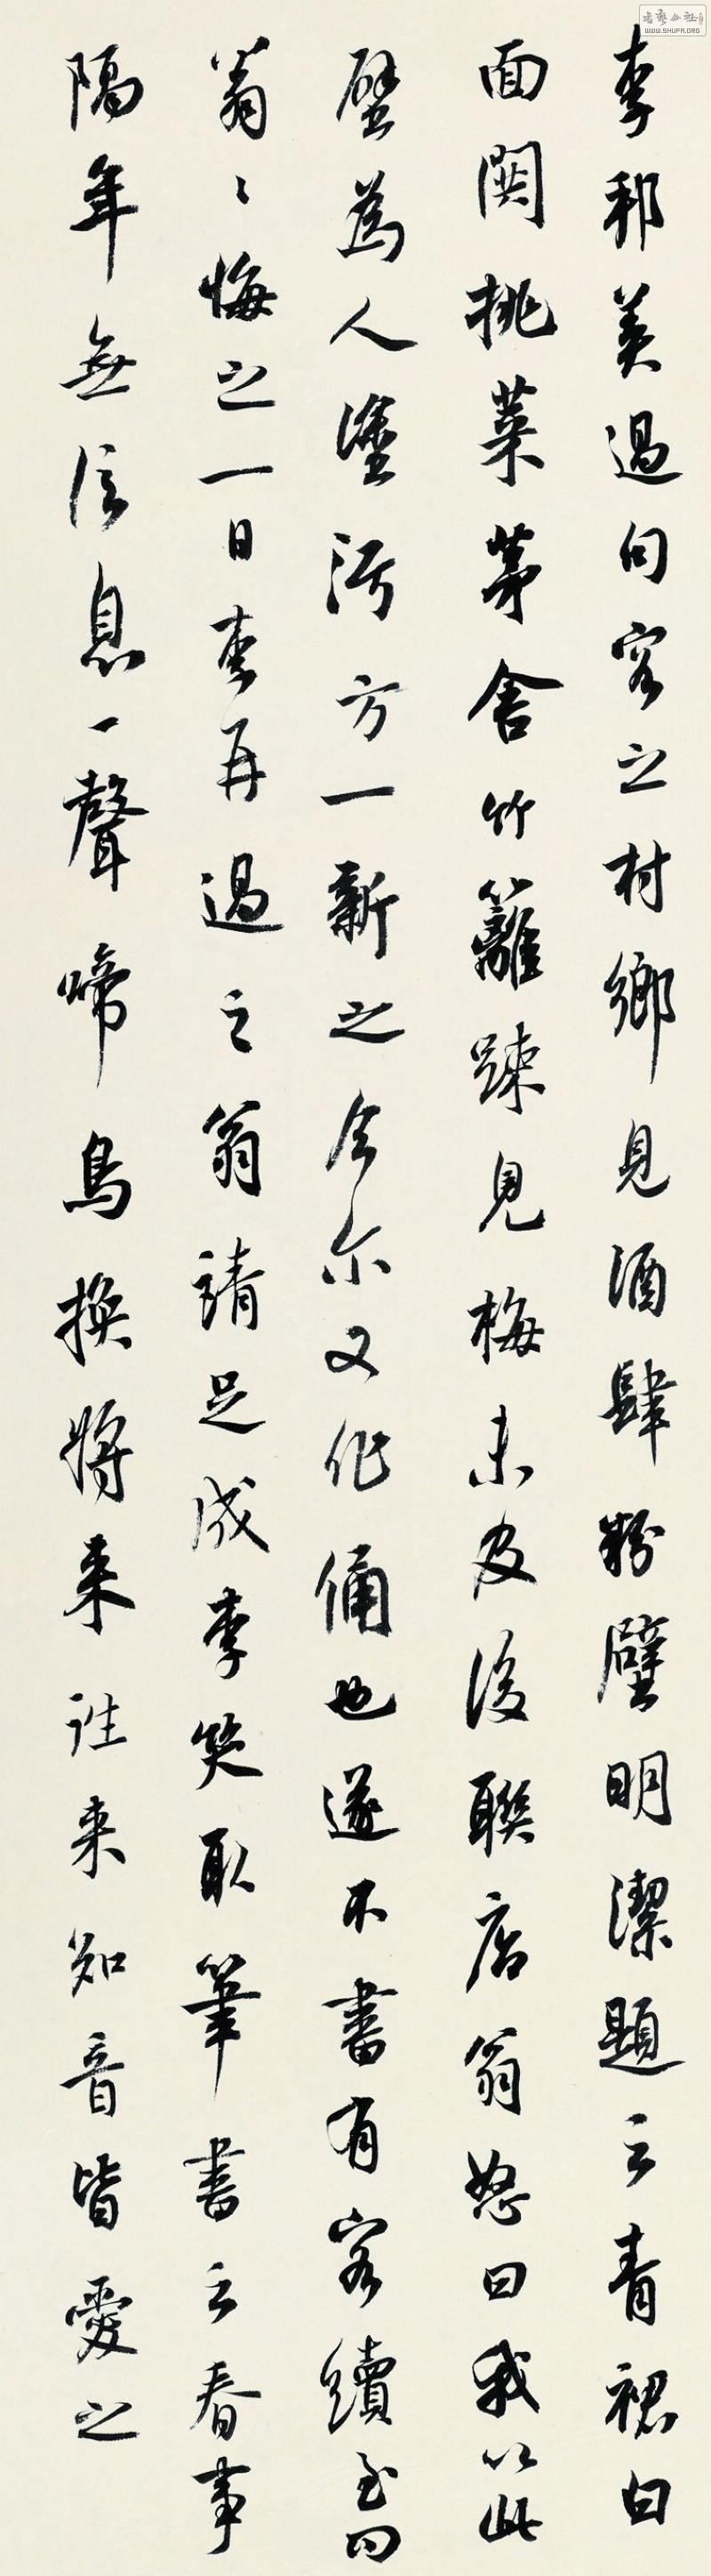 李邦美過句容之村鄉見酒肆粉壁明潔題云青裙白
面閧挑菜茅舍竹籬踈見梅未及後聯店翁怒曰我以此
壁為人塗污方一新之今尔又作俑也遂不書有客續至曰
翁〻悔之一日李再過之翁請足成李笑取筆書云春事
隔年無信息一聲啼鳥換將来誰来知音皆愛之
WWW.SHUFA.ORG